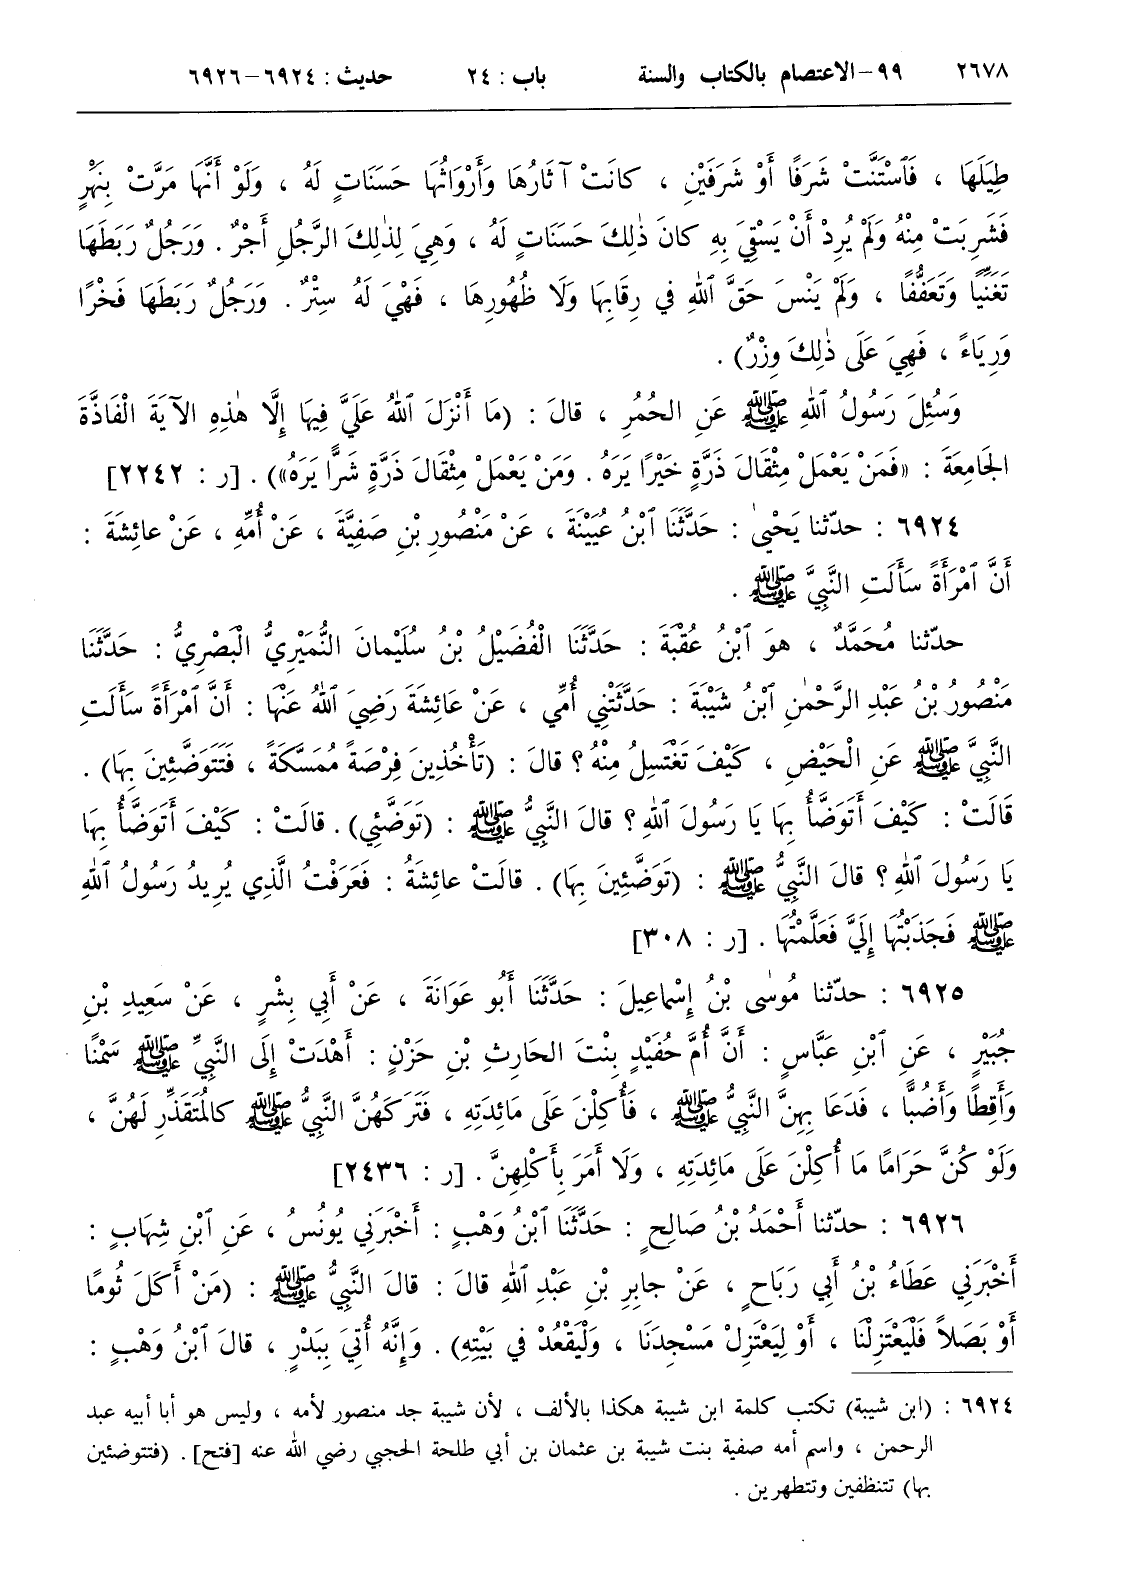 ٢٦٧٨ ٩٩-الاعتصام بالكتاب والسنة باب : ٢٤ حديث : ٦٩٢٤-٦٩٢٦
طِيَلَهَا ، فَٱسْتَنَّتْ شَرَفًا أَوْ شَرَفَيْنِ ، كانَتْ آثَارُهَا وَأَرْوَاثُهَا حَسَنَاتٍ لَهُ ، وَلَوْ أَنَّهَا مَرَّتْ بِنَهَرٍ
فَشَرِبَتْ مِنْهُ وَلَمْ يُرِدْ أَنْ يَسْقِيَ بِهِ كانَ ذٰلِكَ حَسَنَاتٍ لَهُ ، وَهِيَ لِذٰلِكَ الرَّجُلِ أَجْرٌ . وَرَجُلٌ رَبَطَهَا
تَغَنِّيًا وَتَعَفُّفًا ، وَلَمْ يَنْسَ حَقَّ ٱللهِ في رِقَابِهَا وَلَا ظُهُورِهَا ، فَهْيَ لَهُ سِتْرٌ . وَرَجُلٌ رَبَطَهَا فَخْرًا
وَرِيَاءً ، فَهِيَ عَلَى ذٰلِكَ وِزْرٌ) .
وَسُئِلَ رَسُولُ ٱللهِ ﷺ عَنِ الحُمُرِ ، قالَ : (مَا أَنْزَلَ ٱللهُ عَلَيَّ فِيهَا إِلَّا هٰذِهِ الآيَةَ الْفَاذَّةَ
الجَامِعَةَ : «فَمَنْ يَعْمَلْ مِثْقَالَ ذَرَّةٍ خَيْرًا يَرَهُ . وَمَنْ يَعْمَلْ مِثْقَالَ ذَرَّةٍ شَرًّا يَرَهُ») . [ر : ٢٢٤٢]
٦٩٢٤ : حدّثنا يَحْيىٰ : حَدَّثَنَا ٱبْنُ عُيَيْنَةَ ، عَنْ مَنْصُورِ بْنِ صَفِيَّةَ ، عَنْ أُمِّهِ ، عَنْ عائِشَةَ :
أَنَّ ٱمْرَأَةً سَأَلَتِ النَّبِيَّ ﷺ .
حدّثنا مُحَمَّدٌ ، هوَ ٱبْنُ عُقْبَةَ : حَدَّثَنَا الْفُضَيْلُ بْنُ سُلَيْمانَ النُّمَيْرِيُّ الْبَصْرِيُّ : حَدَّثَنَا
مَنْصُورُ بْنُ عَبْدِ الرَّحْمٰنِ ٱبْنُ شَيْبَةَ : حَدَّثَتْنِي أُمِّي ، عَنْ عَائِشَةَ رَضِيَ ٱللهُ عَنْهَا : أَنَّ ٱمْرَأَةً سَأَلَتِ
النَّبِيَّ ﷺ عَنِ الْحَيْضِ ، كَيْفَ تَغْتَسِلُ مِنْهُ ؟ قالَ : (تَأْخُذِينَ فِرْصَةً مُمَسَّكَةً ، فَتَتَوَضَّئِينَ بِهَا) .
قَالَتْ : كَيْفَ أَتَوَضَّأُ بِهَا يَا رَسُولَ ٱللهِ ؟ قالَ النَّبِيُّ ﷺ : (تَوَضَّئِي) . قالَتْ : كَيْفَ أَتَوَضَّأُ بِهَا
يَا رَسُولَ ٱللهِ ؟ قالَ النَّبِيُّ ﷺ : (تَوَضَّئِينَ بِهَا) . قالَتْ عائِشَةُ : فَعَرَفْتُ الَّذِي يُرِيدُ رَسُولُ ٱللهِ
ﷺ فَجَذَبْتُهَا إِلَيَّ فَعَلَّمْتُهَا . [ر : ٣٠٨]
٦٩٢٥ : حدّثنا مُوسٰى بْنُ إِسْماعِيلَ : حَدَّثَنَا أَبُو عَوَانَةَ ، عَنْ أَبِي بِشْرٍ ، عَنْ سَعِيدِ بْنِ
جُبَيْرٍ ، عَنِ ٱبْنِ عَبَّاسٍ : أَنَّ أُمَّ حُفَيْدٍ بِنْتَ الحَارِثِ بْنِ حَزْنٍ : أَهْدَتْ إِلَى النَّبِيِّ ﷺ سَمْنًا
وَأَقِطًا وَأَضُبًّا ، فَدَعَا بِهِنَّ النَّبِيُّ ﷺ ، فَأُكِلْنَ عَلَى مَائِدَتِهِ ، فَتَرَكَهُنَّ النَّبِيُّ ﷺ كالمُتَقَذِّرِ لَهُنَّ ،
وَلَوْ كُنَّ حَرَامًا مَا أُكِلْنَ عَلَى مَائِدَتِهِ ، وَلَا أَمَرَ بِأَكْلِهِنَّ . [ر : ٢٤٣٦]
٦٩٢٦ : حدّثنا أَحْمَدُ بْنُ صَالِحٍ : حَدَّثَنَا ٱبْنُ وَهْبٍ : أَخْبَرَنِي يُونُسُ ، عَنِ ٱبْنِ شِهَابٍ :
أَخْبَرَنِي عَطَاءُ بْنُ أَبِي رَبَاحٍ ، عَنْ جابِرِ بْنِ عَبْدِ ٱللهِ قالَ : قالَ النَّبِيُّ ﷺ : (مَنْ أَكَلَ ثُومًا
أَوْ بَصَلاً فَلْيَعْتَزِلْنَا ، أَوْ لِيَعْتَزِلْ مَسْجِدَنَا ، وَلْيَقْعُدْ في بَيْتِهِ) . وَإِنَّهُ أُتِيَ بِبَدْرٍ ، قالَ ٱبْنُ وَهْبٍ :
٦٩٢٤ : (ابن شيبة) تكتب كلمة ابن شيبة هكذا بالألف ، لأن شيبة جد منصور لأمه ، وليس هو أبا أبيه عبد
الرحمن ، واسم أمه صفية بنت شيبة بن عثمان بن أبي طلحة الحجبي رضي الله عنه [فتح] . (فتتوضئين
بها) تتنظفين وتتطهرين .